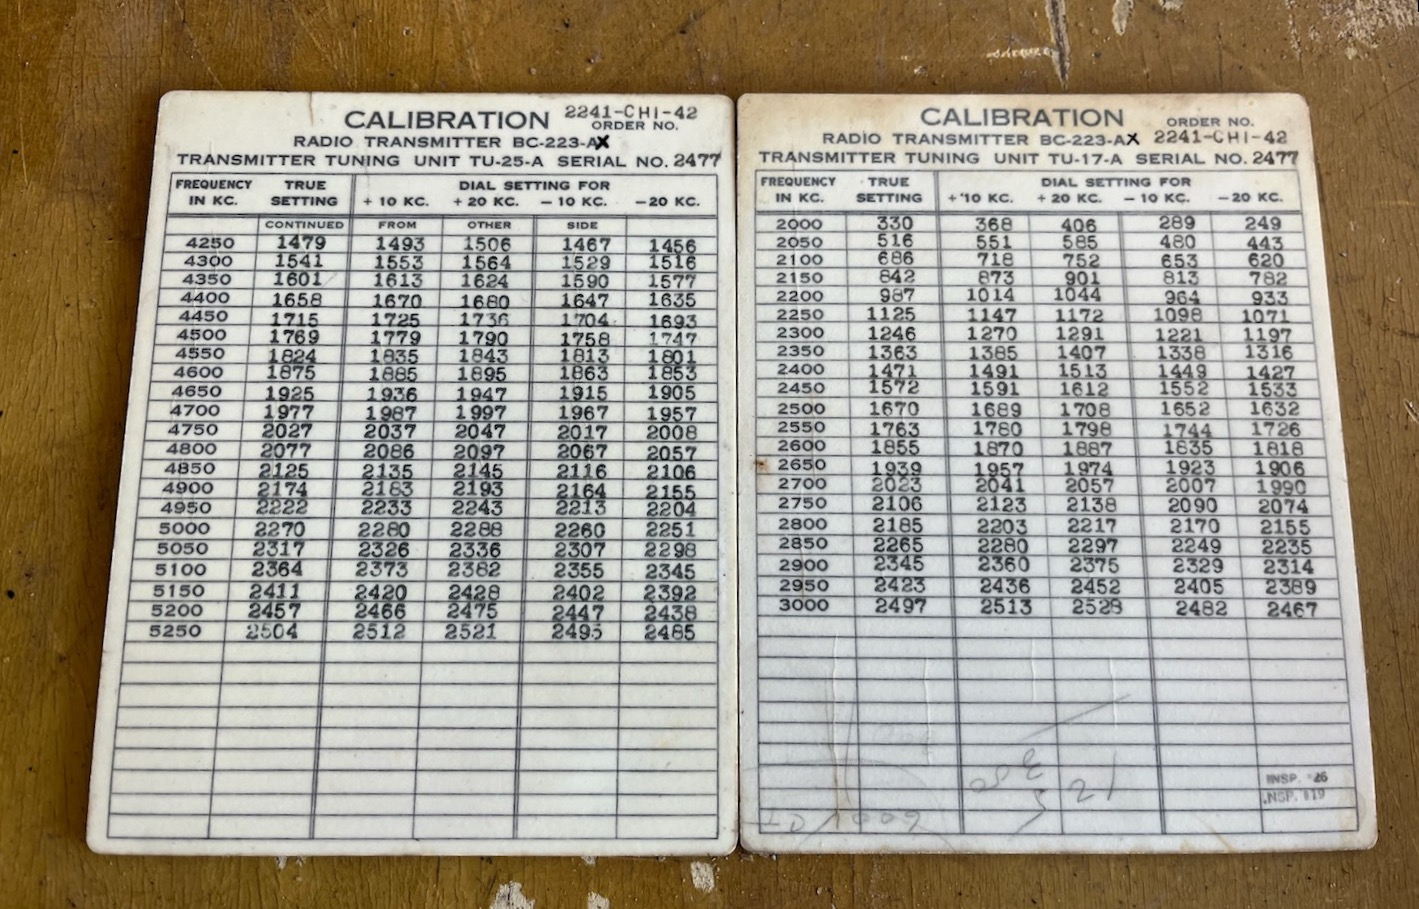 CALIBRATION 2241-CHI-42
ORDER NO.
RADIO TRANSMITTER BC-223-AX
TRANSMITTER TUNING UNIT TU-25-A SERIAL NO. 2477
FREQUENCY IN KC. TRUE SETTING DIAL SETTING FOR
+ 10 KC. + 20 KC. - 10 KC. - 20 KC.
CONTINUED FROM OTHER SIDE
4250 1479 1493 1506 1467 1456
4300 1541 1553 1564 1529 1516
4350 1601 1613 1624 1590 1577
4400 1658 1670 1680 1647 1635
4450 1715 1725 1736 1704 1693
4500 1769 1779 1790 1758 1747
4550 1824 1835 1843 1813 1801
4600 1875 1885 1895 1863 1853
4650 1925 1936 1947 1915 1905
4700 1977 1987 1997 1967 1957
4750 2027 2037 2047 2017 2008
4800 2077 2086 2097 2067 2057
4850 2125 2135 2145 2116 2106
4900 2174 2183 2193 2164 2155
4950 2222 2233 2243 2213 2204
5000 2270 2280 2288 2260 2251
5050 2317 2326 2336 2307 2298
5100 2364 2373 2382 2355 2345
5150 2411 2420 2428 2402 2392
5200 2457 2466 2475 2447 2438
5250 2504 2512 2521 2495 2485
CALIBRATION ORDER NO.
RADIO TRANSMITTER BC-223-AX 2241-CHI-42
TRANSMITTER TUNING UNIT TU-17-A SERIAL NO. 2477
FREQUENCY IN KC. TRUE SETTING DIAL SETTING FOR
+ 10 KC. + 20 KC. - 10 KC. - 20 KC.
2000 330 368 406 289 249
2050 516 551 585 480 443
2100 686 718 752 653 620
2150 842 873 901 813 782
2200 987 1014 1044 964 933
2250 1125 1147 1172 1098 1071
2300 1246 1270 1291 1221 1197
2350 1363 1385 1407 1338 1316
2400 1471 1491 1513 1449 1427
2450 1572 1591 1612 1552 1533
2500 1670 1689 1708 1652 1632
2550 1763 1780 1798 1744 1726
2600 1855 1870 1887 1835 1818
2650 1939 1957 1974 1923 1906
2700 2023 2041 2057 2007 1990
2750 2106 2123 2138 2090 2074
2800 2185 2203 2217 2170 2155
2850 2265 2280 2297 2249 2235
2900 2345 2360 2375 2329 2314
2950 2423 2436 2452 2405 2389
3000 2497 2513 2528 2482 2467
21
INSP. 26
INSP. 119